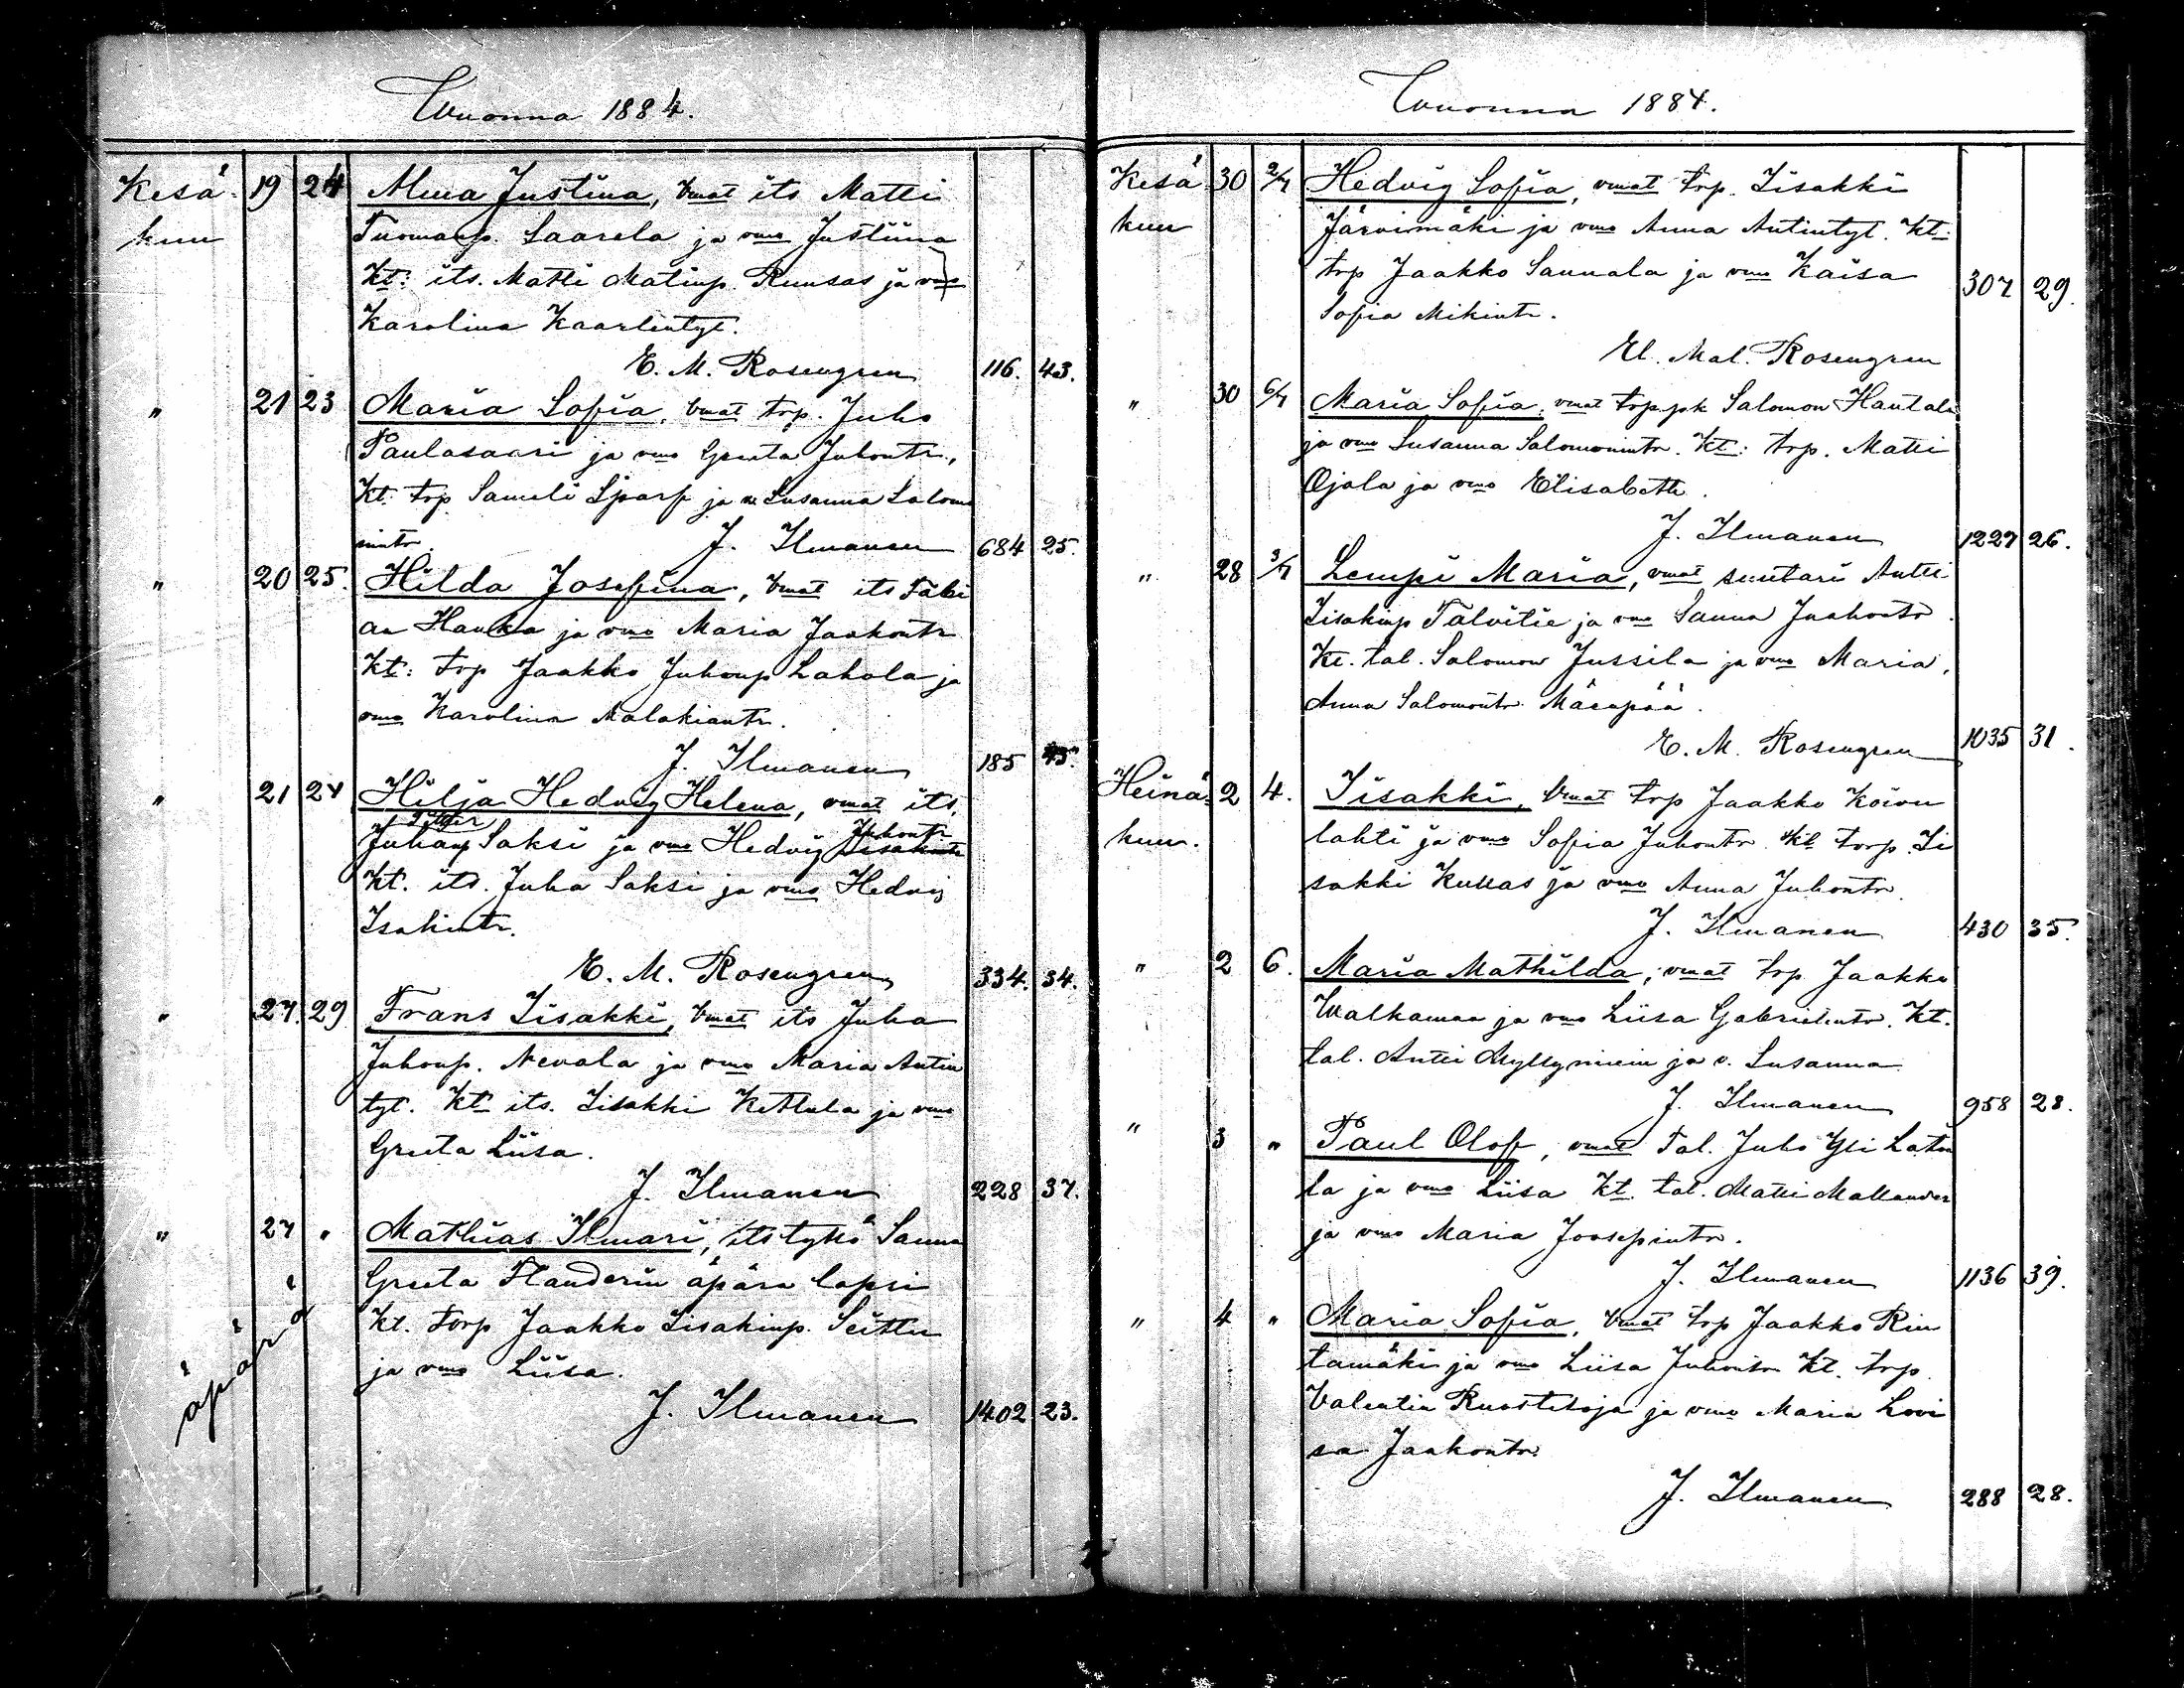 Wuonna 1884.
Kesä- 19 24 Alma Justina, Vmat its Matti
kuu Tuomaap. Saarela ja vmo Justiina
Kt: its. Matti Matinp. Ruusas ja vmo
Karolina Kaarlintyt.
E. M. Rosengren 116. 43.
" 21 23 Maria Sofia, Vmat trp. Juho
Paulasaari ja vmo Greeta Juhontr.,
Kt. trp Sameli Sparf ja v. Susanna Salomo
nintr. J. Ilmanen 684 25.
" 20 25. Hilda Josefina, Vmat its Fabi
an Hauka ja vmo Maria Jaakontr
Kt: trp Jaakko Juhonp Lahola ja
vmo Karolina Malakiantr.
J. Ilmanen 185 45.
" 21 24 Hilja Hedvig Helena, vmat its.
Juhanp Saksi ja vmo Hedvig Juhontr
Kt. its. Juha Saksi ja vmo Hedvig
Isakintr.
E. M. Rosengren 334. 34.
" 27. 29 Frans Iisakki, Vmat its Juha
Juhonp. Nevala ja vmo Maria Antin
tyt. Kt its. Iisakki Kettula ja vmo
Greeta Liisa.
J. Ilmanen 228 37.
" 27 " Mathias Ilmari, its tytö Sanna
Greeta Flanderin äpärä lapsi
äpärä Kt. torp Jaakko Iisakinp. Seittu
ja vmo Liisa.
J. Ilmanen 1402 23.
Wuonna 1884.
Kesä 30 2/7 Hedvig Sofia, vmat trp. Iisakki
kuu Järvimäki ja vmo Anna Antintyt. Kt:
trp Jaakko Saunala ja vmo Kaisa 307 29.
Sofia Mikintr.
El. Mal. Rosengren
" 30 6/7 Maria Sofia, vmat trp.pk Salomon Hautala
ja vmo Susanna Salomonintr. Kt: trp. Matti
Ojala ja vmo Elisabeth.
J. Ilmanen 1227 26.
" 28 3/7 Lempi Maria, vmat suutari Antti
Iisakinp Talvitie ja vmo Sanna Jaakontr.
Kt. tal. Salomon Jussila ja vmo Maria,
Anna Salomontr Mäenpää.
E. M. Rosengren 1035 31.
Heinä- 2 4. Iisakki, Vmat trp Jaakko Koivu
kuu. lahti ja vmo Sofia Juhontr. Kt torp. Ii
sakki Kukkas ja vmo Anna Juhontr.
J. Ilmanen 430 35.
" 2 6. Maria Mathilda, vmat trp. Jaakko
Walkamaa ja vmo Liisa Gabrielintr. Kt.
tal. Antti Myllyniemi ja v. Susanna
J. Ilmanen 958 28.
" 3 " Paul Olof, vmat Tal. Juho Yli Lato
la ja vmo Liisa Kt. tal. Matti Mallander
ja vmo Maria Joosepintr.
J. Ilmanen 1136 39.
" 4 " Maria Sofia, Vmat trp Jaakko Rin
tamäki ja vmo Liisa Juhontr Kt. trp.
Valentin Ruostetoja ja vmo Maria Lovi
sa Jaakontr.
J. Ilmanen 288 28.